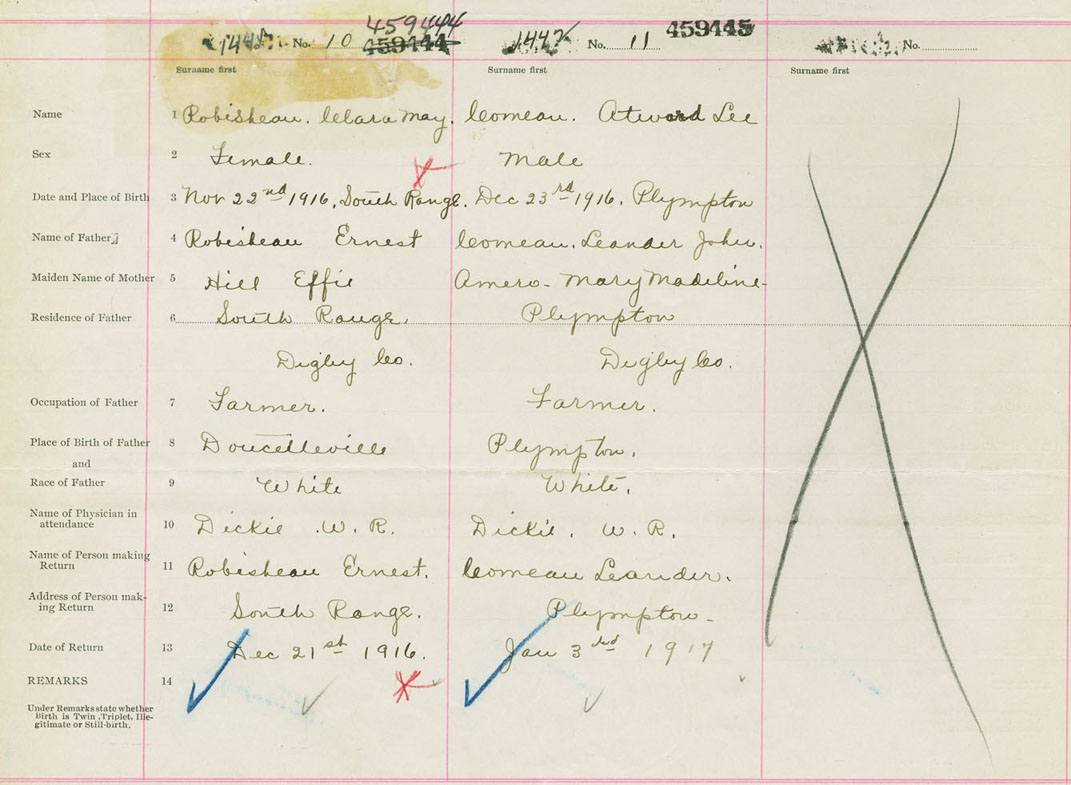 459444
No. 10 459444 1447 No. 11 459445 No.
Surname first Surname first Surname first
Name 1 Robisheau. Clara May. Comeau. Atword Lee
Sex 2 Female. Male
Date and Place of Birth 3 Nov 22nd 1916, South Range. Dec 23rd 1916. Plympton
Name of Father 4 Robisheau Ernest Comeau. Leander John.
Maiden Name of Mother 5 Hill Effie Amero- Mary Madeline-
Residence of Father 6 South Range, Plympton
Digby Co. Digby Co.
Occupation of Father 7 Farmer. Farmer.
Place of Birth of Father 8 Doucetteville Plympton.
and
Race of Father 9 White White.
Name of Physician in
attendance 10 Dickie W. R. Dickie, W. R.
Name of Person making
Return 11 Robisheau Ernest. Comeau Leander.
Address of Person mak-
ing Return 12 South Range. Plympton-
Date of Return 13 Dec 21st 1916. Jan 3rd 1917
REMARKS 14
Under Remarks state whether
Birth is Twin, Triplet, Ille-
gitimate or Still-birth.